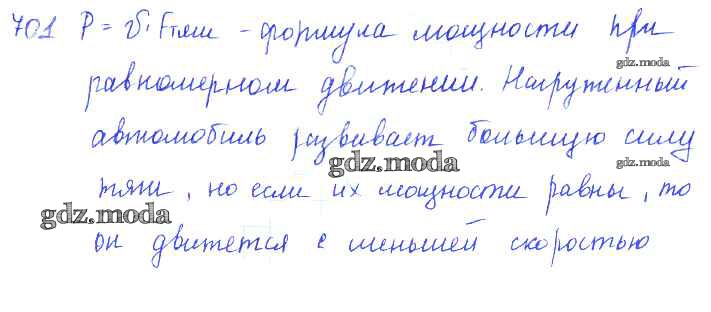 701 P = v · Fтяги - формула мощности при
gdz.moda
равномерном движении. Нагруженный
автомобиль развивает большую силу
gdz.moda
gdz.moda
тяги, но если их мощности равны, то
gdz.moda
он движется с меньшей скоростью